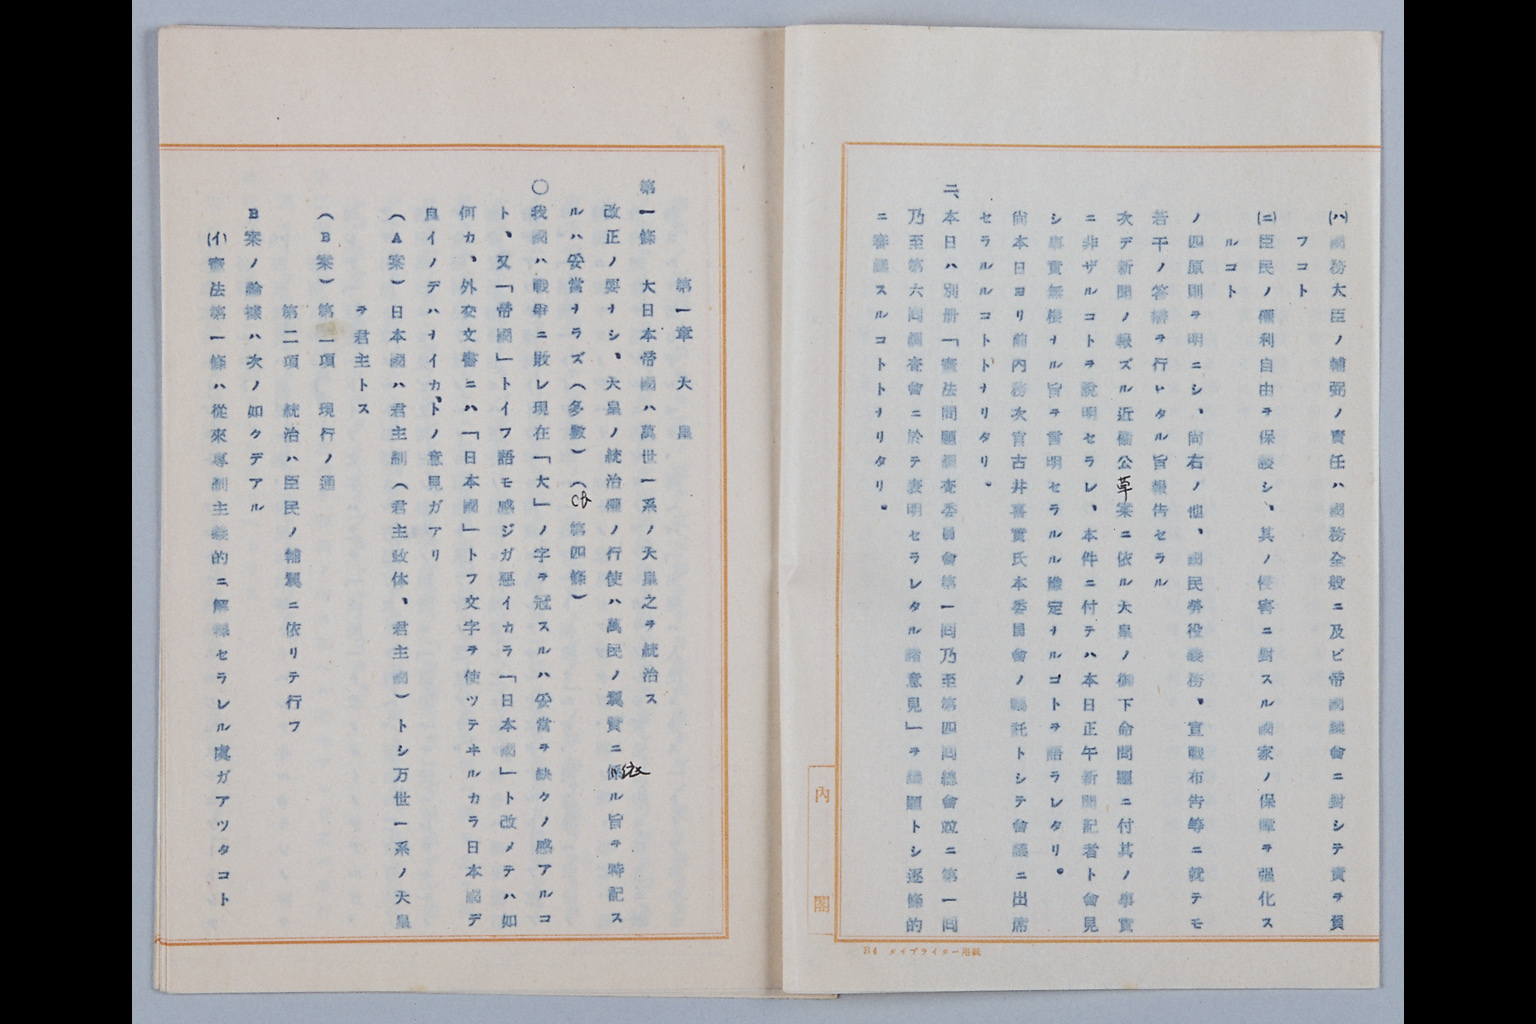 (ハ)國務大臣ノ輔弼ノ責任ハ國務全般ニ及ビ帝國議會ニ對シテ責ヲ負
フコト
(ニ)臣民ノ權利自由ヲ保護シ、其ノ侵害ニ對スル國家ノ保障ヲ强化ス
ルコト
ノ四原則ヲ明ニシ、尙右ノ他、國民勞役義務、宣戰布吿等ニ就テモ
若干ノ答辯ヲ行ヒタル旨報吿セラル
次デ新聞ノ報ズル近衞公草案ニ依ル大皇ノ御下命問題ニ付其ノ事實
ニ非ザルコトヲ說明セラレ、本件ニ付テハ本日正午新聞記者ト會見
シ事實無根ナル旨ヲ言明セラルル豫定ナルコトヲ語ラレタリ。
尙本日ヨリ前內務次官古井喜實氏本委員會ノ囑託トシテ會議ニ出席
セラルルコトトナリタリ。
二、本日ハ別册「憲法問題調査委員會第一囘乃至第四囘總會竝ニ第一囘
乃至第六囘調査會ニ於テ表明セラレタル諸意見」ヲ議題トシ逐條的
ニ審議スルコトトナリタリ。
內閣
B4 タイプライター用紙
第一章 天皇
第一條 大日本帝國ハ萬世一系ノ天皇之ヲ統治ス
改正ノ要ナシ、天皇ノ統治權ノ行使ハ萬民ノ翼贊ニ係ル旨ヲ特記ス
依
ルハ妥當ナラズ(多數)(cf 第四條)
○我國ハ戰爭ニ敗レ現在「大」ノ字ヲ冠スルハ妥當ヲ缺クノ感アルコ
ト、又「帝國」トイフ語モ感ジガ惡イカラ「日本國」ト改メテハ如
何カ、外交文書ニハ「日本國」トフ文字ヲ使ツテヰルカラ日本國デ
良イノデハナイカ、トノ意見ガアリ
(A案)日本國ハ君主制(君主政体、君主國)トシ万世一系ノ天皇
ヲ君主トス
(B案)第一項 現行ノ通
第二項 統治ハ臣民ノ輔翼ニ依リテ行フ
B案ノ論據ハ次ノ如クデアル
(イ)憲法第一條ハ從來專制主義的ニ解釋セラレル虞ガアツタコト